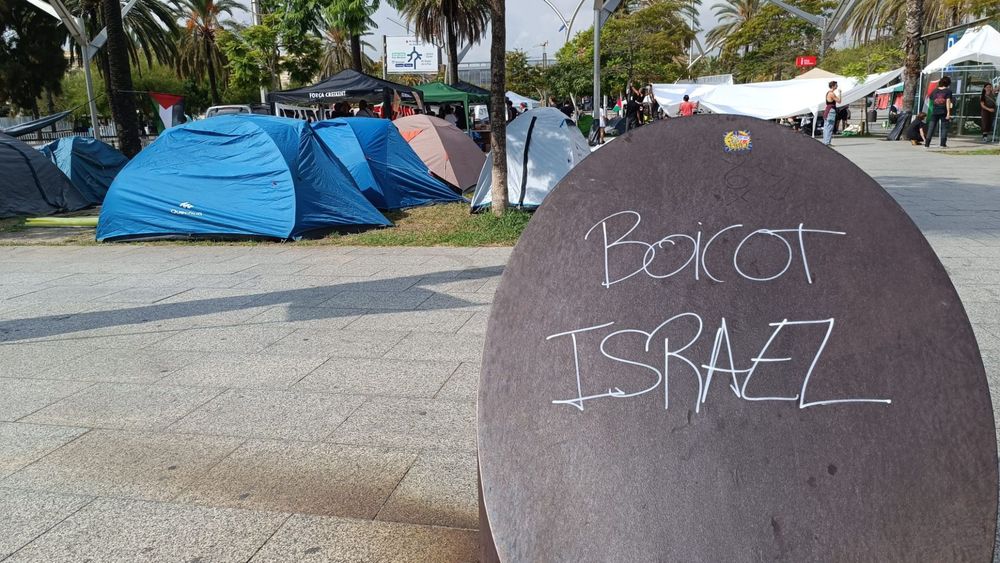 FORÇA CREIXENT
Quechua
BOICOT
ISRAEL